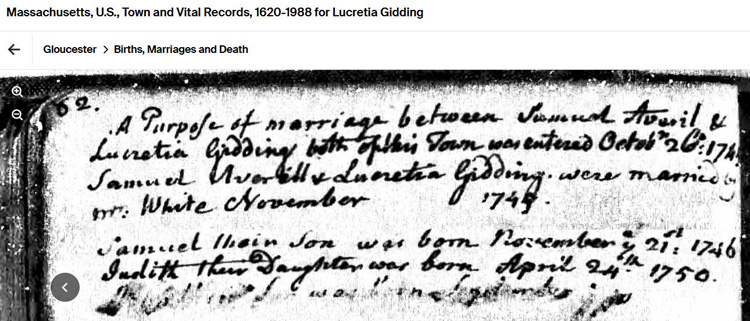 Massachusetts, U.S., Town and Vital Records, 1620-1988 for Lucretia Gidding
Gloucester > Births, Marriages and Death
62.
A Purpose of marriage between Samuel Averil &
Lucretia Gidding both of this Town was entered Octobr 26: 174
Samuel Averill & Lucretia Gidding were married
mr. White November 1745.
Samuel thair Son was born November ye 21st: 1746
Judith their Daughter was born April 24th 1750.
was